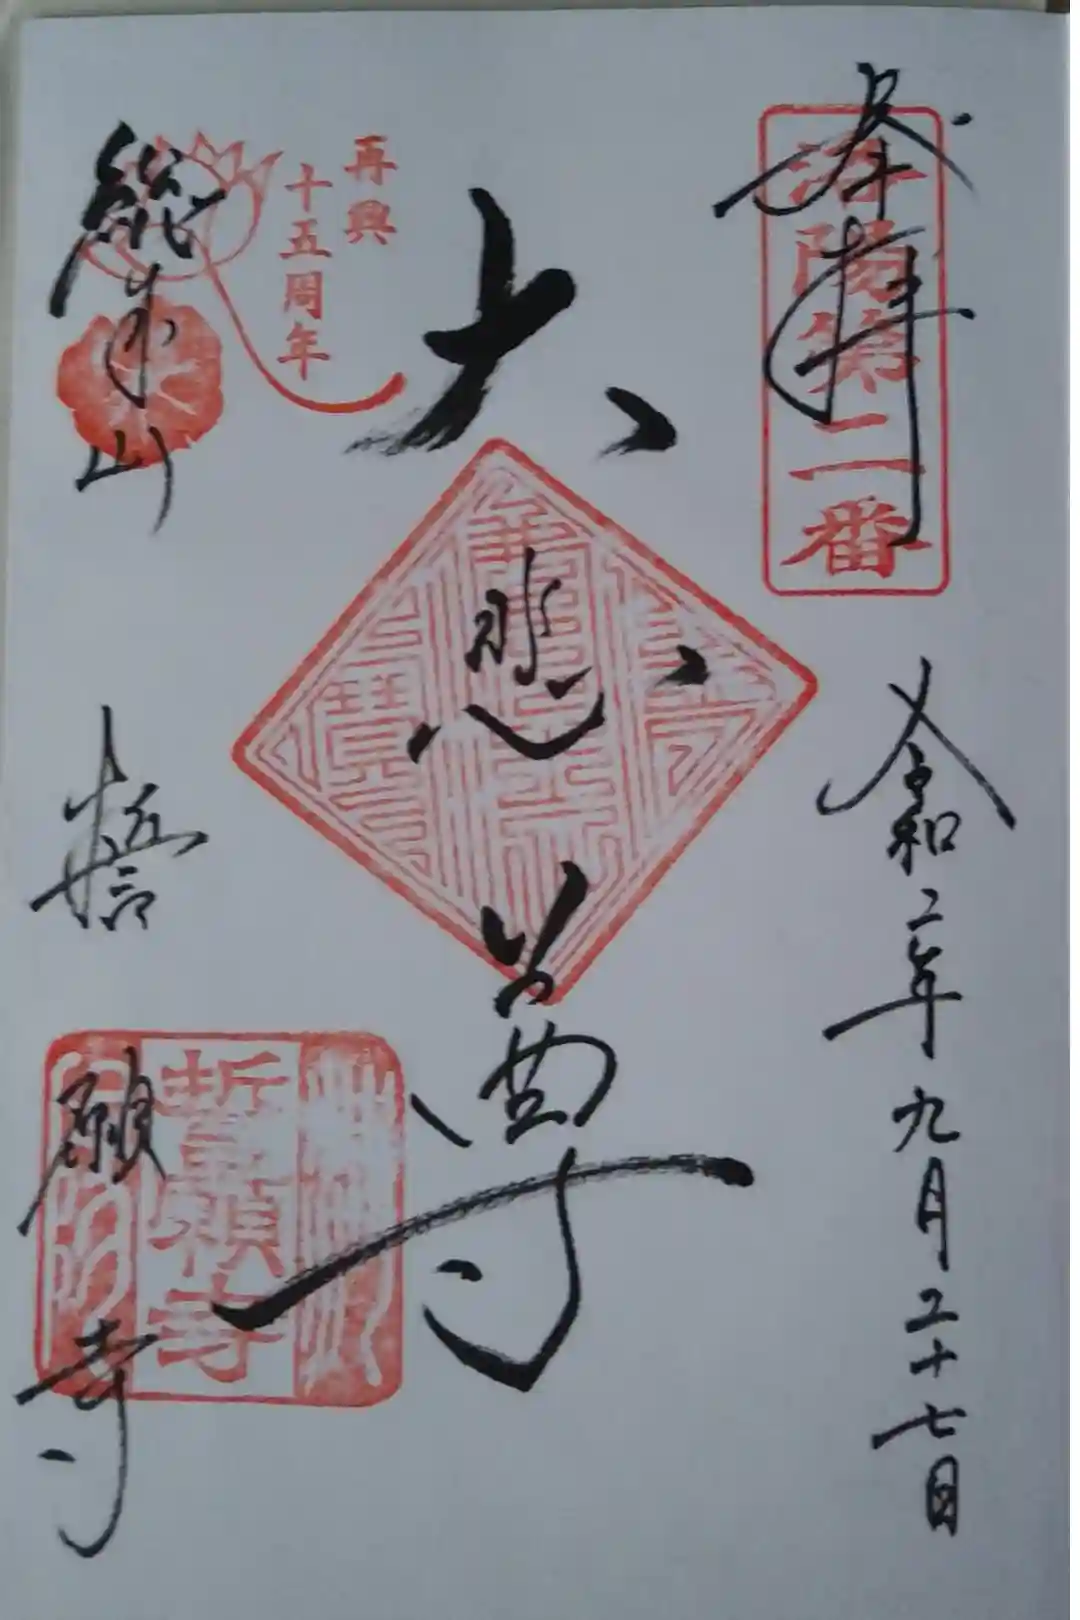 奉拝
洛陽第二番
令和二年九月二十七日
大悲尊
再興
十五周年
山
誓願寺
誓願寺